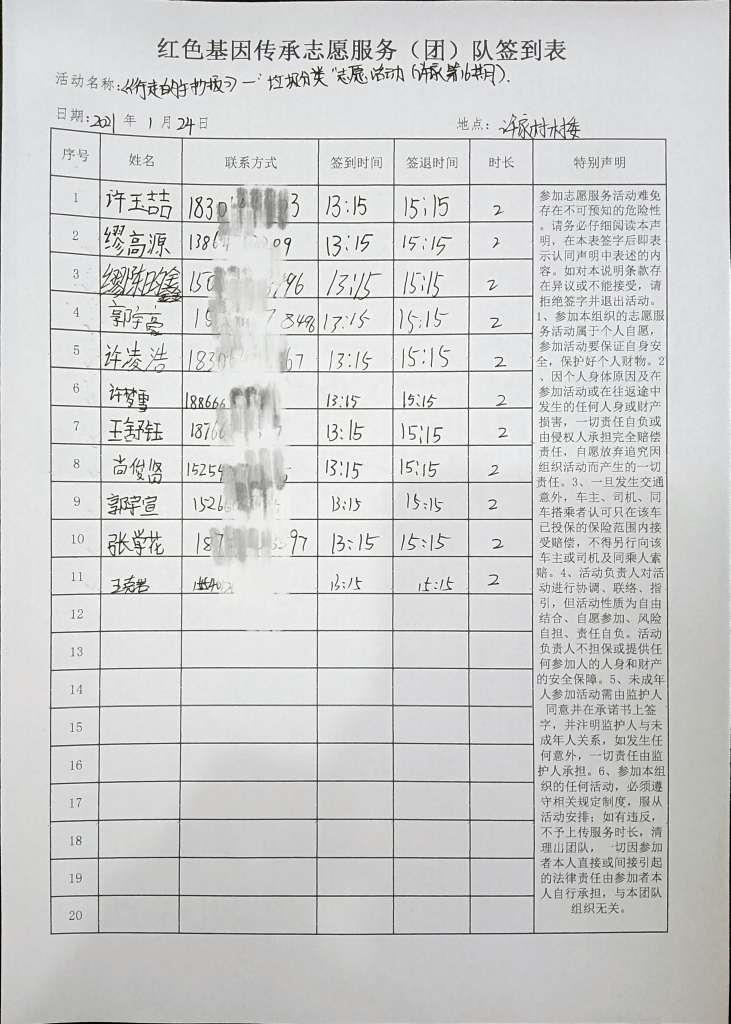 红色基因传承志愿服务（团）队签到表
活动名称：《行走的手抄报》一"垃圾分类"志愿活动
日期：2021 年 1 月 24 日 地点：许家村村委
序号 姓名 联系方式 签到时间 签退时间 时长 特别声明
1 许玉喆 13:15 15:15 2
2 缪高源 13:15 15:15 2
3 13:15 15:15 2
4 郭宇豪 13:15 15:15 2
5 许凌浩 13:15 15:15 2
6 许梦雪 13:15 15:15 2
7 王舒钰 13:15 15:15 2
8 尚俊贤 13:15 15:15 2
9 郭宇宣 13:15 15:15 2
10 张学花 13:15 15:15 2
11 13:15 15:15 2
12
13
14
15
16
17
18
19
20
参加志愿服务活动难免
存在不可预知的危险性
。请务必仔细阅读本声
明，在本表签字后即表
示认同声明中表述的内
容。如对本说明条款存
在异议或不能接受，请
拒绝签字并退出活动。
1、参加本组织的志愿服
务活动属于个人自愿，
参加活动要保证自身安
全，保护好个人财物。2
、因个人身体原因及在
参加活动或在往返途中
发生的任何人身或财产
损害，一切责任自负或
由侵权人承担完全赔偿
责任，自愿放弃追究因
组织活动而产生的一切
责任。3、一旦发生交通
意外，车主、司机、同
车搭乘者认可只在该车
已投保的保险范围内接
受赔偿，不得另行向该
车主或司机及同乘人索
赔。4、活动负责人对活
动进行协调、联络、指
引，但活动性质为自由
结合、自愿参加、风险
自担、责任自负。活动
负责人不担保或提供任
何参加人的人身和财产
的安全保障。5、未成年
人参加活动需由监护人
同意并在承诺书上签
字，并注明监护人与未
成年人关系，如发生任
何意外，一切责任由监
护人承担。6、参加本组
织的任何活动，必须遵
守相关规定制度，服从
活动安排；如有违反，
不予上传服务时长，清
理出团队，一切因参加
者本人直接或间接引起
的法律责任由参加者本
人自行承担，与本团队
组织无关。